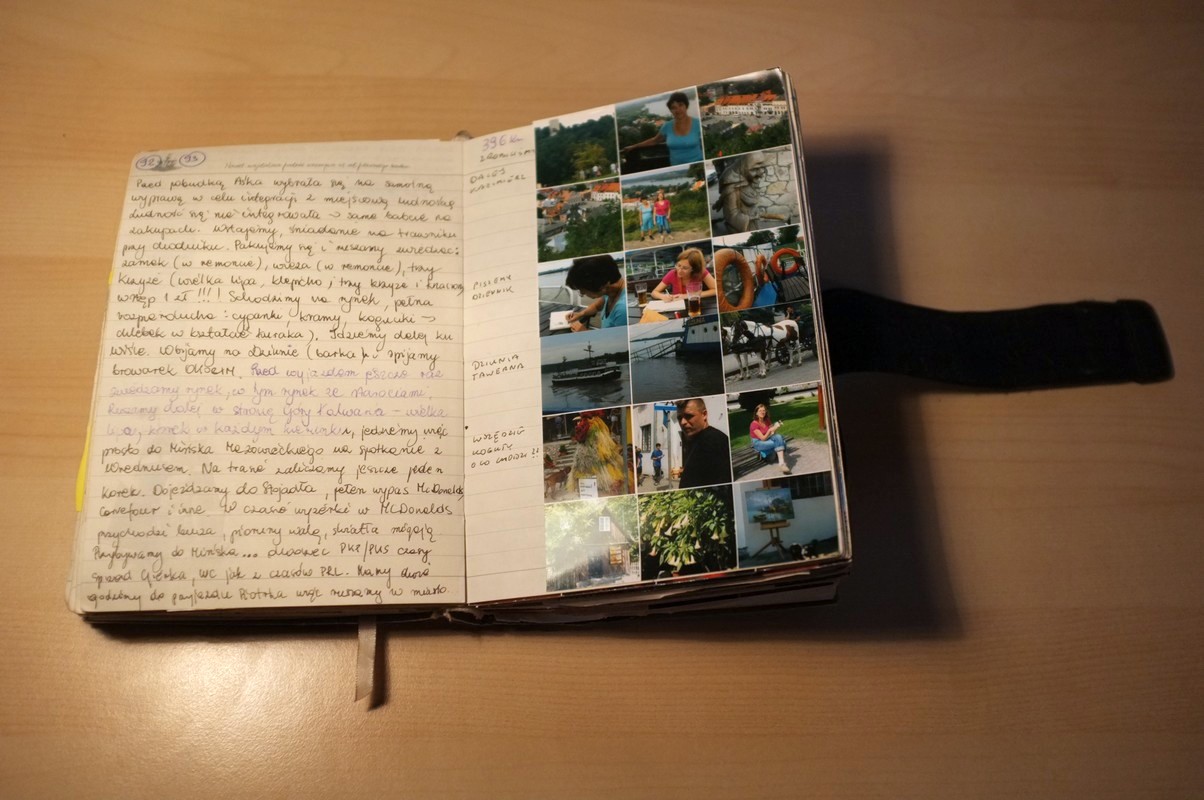 92 93
Przed pobudką Aśka wybrała się na samotną
wyprawę w celu integracji z miejscową ludnością
ludność się nie integrowała → same babcie na
zakupach. Wstajemy, śniadanie na trawniku
przy chodniku. Pakujemy się i ruszamy zwiedzać:
zamek (w remoncie), wieża (w remoncie), trzy
krzyże (wielka lipa, klepcho, trzy krzyże i
wstęp 1 zł !!! Schodzimy na rynek, pełna
rozpierducha: cyganki, kramy, koguciki →
chlebek w kształcie kuraka). Idziemy dalej ku
Wiśle. Wbijamy na Dziunię (barka) i spijamy
browarek OKOCIM. Przed wyjazdem jeszcze raz
zwiedzamy rynek, w tym rynek ze starociami.
Ruszamy dalej w stronę Góry Kalwaria - wielka
lipa, korek w każdym kierunku, jedziemy więc
prosto do Mińska Mazowieckiego na spotkanie z
Na trasie zaliczamy jeszcze jeden
korek. Dojeżdżamy do Stojadła, pełen wypas McDonalds,
Carrefour i inne. W czasie wyżerki w McDonalds
przychodzi burza, pioruny walą, światła mrugają
Przybywamy do Mińska... dworzec PKP/PKS czasy
sprzed Gierka, WC jak z czasów PRL. Mamy dwie
godziny do przyjazdu Piotrka więc ruszamy w miasto
396 km
DALEJ
KAZIMIERZ
PISZEMY
DZIENNIK
DZIUNIA
TAWERNA
WSZĘDZIE
KOGUTY
O CO CHODZI ?!